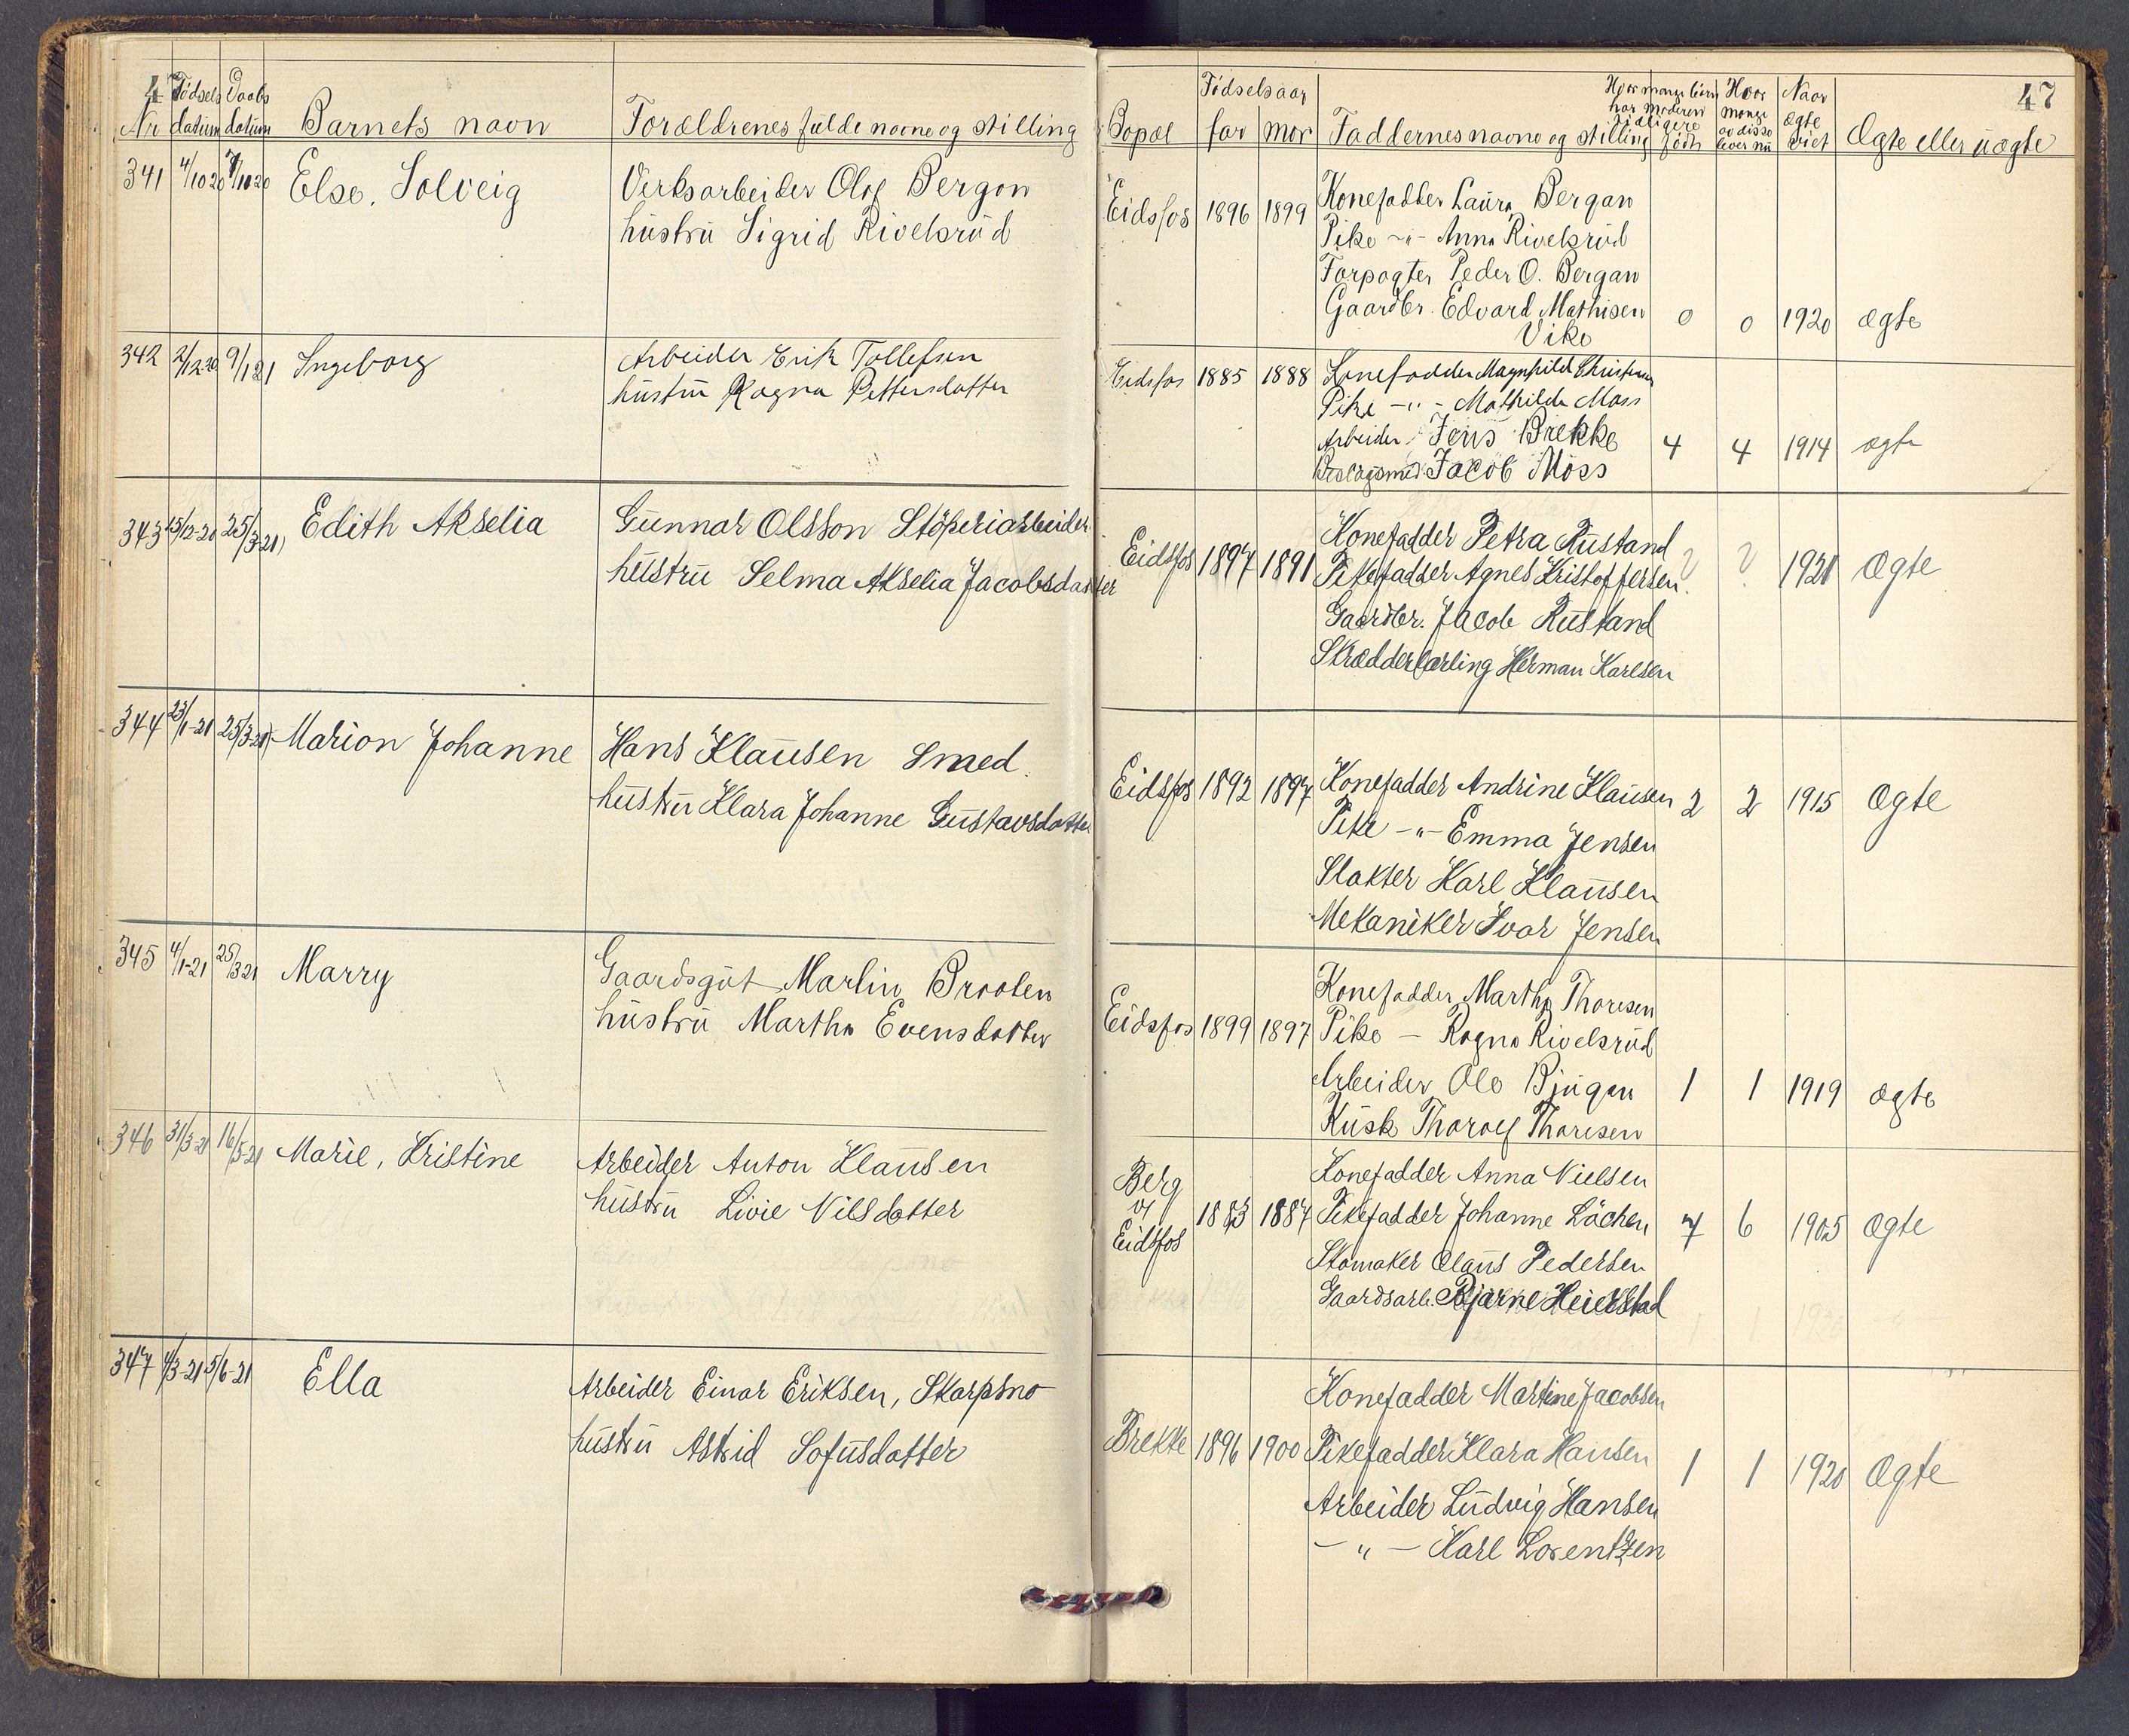 47
Nr Fødsels datum Daabs datum Barnets navn Forældrenes fulde navne og stilling
341 4/10 20 7/11 20 Else, Solveig Verksarbeider Olof Bergan
hustru Sigrid Rivelsrud
342 2/12 20 9/1 21 Ingeborg Arbeider Erik Tollefsen
hustru Ragna Pettersdatter
343 15/12-20 25/3-21 Edith Akselia Gunnar Olsson Støperiarbeider
hustru Selma Akselia Jacobsdatter
344 23/1-21 25/3-21 Marion Johanne Hans Klausen Smed.
hustru Klara Johanne Gustavsdatter
345 4/1-21 25/3 21 Marry Gaardsgut Marlin Braaten
hustru Martha Evensdatter
346 31/3-21 16/5-21 Marie, Kristine Arbeider Anton Klausen
hustru Livie Nilsdatter
347 4/3-21 5/6-21 Ella Arbeider Einar Eriksen, Skarpsno
hustru Astrid Sofusdatter
47
Bopæl Fødselsaar far mor Faddernes navne og stilling Hvor mange børn har moderen tidligere født Hvor mange av disse lever nu Naar ægte viet Ægte eller uægte
Eidsfos 1896 1899 Konefadder Laura Bergan
Pike -"- Anna Rivelsrud
Forpagter Peder O. Bergan
Gaardbr. Edvard Mathisen 0 0 1920 ægte
Vike
Eidsfos 1885 1888 Konefadder Magnhild
Pike -"- Mathilde Moss
Arbeider Jens Brekke 4 4 1914 ægte
Jacob Moss
Konefadder Petra Rustand
Eidsfos 1897 1891 Pikefadder Agnes Kristoffersen ? ? 1920 Ægte
Gaardbr. Jacob Rustand
Skrædderlærling Herman Karlsen
Eidsfos 1892 1897 Konefadder Andrine Klausen 2 2 1915 Ægte
Pike -"- Emma Jensen
Slakter Karl Klausen
Mekaniker Ivar Jensen
Konefadder Martha Thoresen
Eidsfos 1899 1897 Pike — Ragna Rivelsrud
Arbeider Ole Bjugan 1 1 1919 ægte
Kusk Thorolf Thoresen
Berg Konefadder Anna Nielsen
v/ 1883 1887 Pikefadder Johanne Løchen 7 6 1905 Ægte
Eidsfos Skomaker Olaus Pedersen
Gaardsarb. Bjarne Heierstad
Konefadder Martine Jacobsen
Brekke 1896 1900 Pikefadder Klara Hansen 1 1 1920 Ægte
Arbeider Ludvig Hansen
- " - Karl Lorentzen